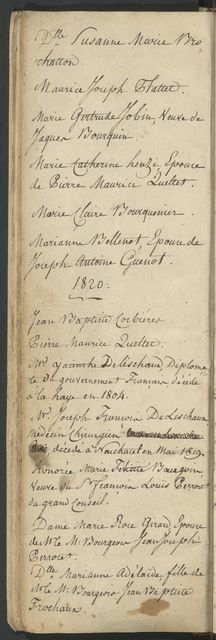 Dlle Susanne Marie Bro-
chatton.
Maurice Joseph Flattet.
Marie Gertrude Jobin, Veuve de
Jaques Bourquin
Marie Catherine henzi, Epouse
de Pierre Maurice Quellet.
Marie Claire Bourquenier.
Marianne Bellenot, Epouse de
Joseph Antoine Guenot.
1820.
Jean Baptiste Corbières
Pierre Maurice Quellet.
Mr. hyacinthe DeLéschaud, Diploma-
te du gouvernement Français décédé
à la haye en 1804.
Mr. Joseph François DeLeschaux
Médecin Chirurgien
décédé à Vauchaut en Mai 1819.
honorée Marie
Veuve du Sr. François Louis Perrot
du grand Conseil.
Dame Marie Rose Girard, Epouse
de Mr le M. Bourgeois Jean Joseph
Perrotet.
Dlle Marianne Adélaïde, fille de
Mr le M. Bourgeois Jean Baptiste
Frochaux.